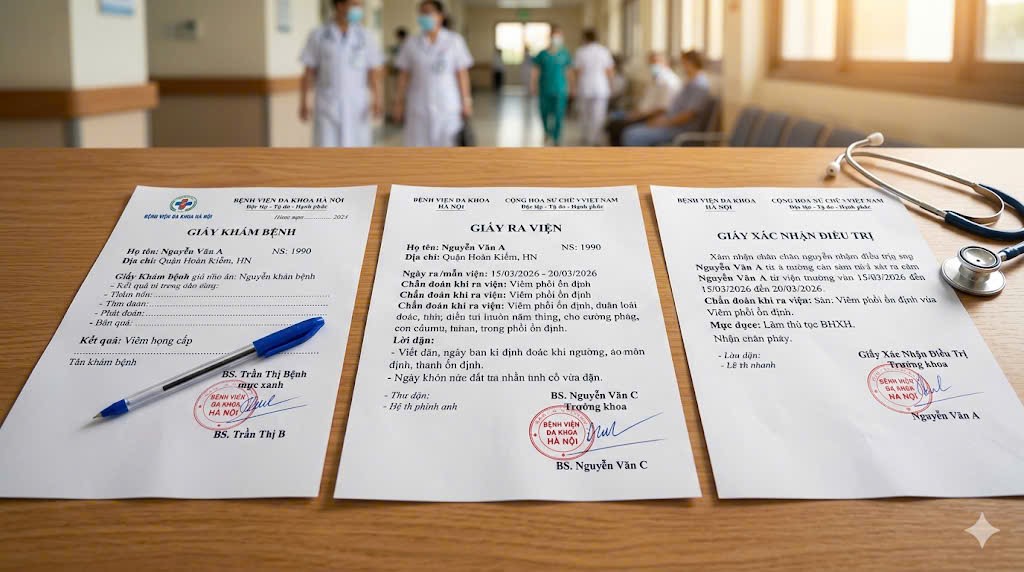 BỆNH VIỆN ĐA KHOA HÀ NỘI
BỆNH VIỆN DA KHOA HÀ NỘI
Độc tập - Tự do - Hạnh phúc
2024
GIẤY KHÁM BỆNH
Họ tên: Nguyễn Văn A NS: 1990
Địa chỉ: Quận Hoàn Kiếm, HN
Giấy Khám bệnh Nguyên khán bệnh
- Phát doán:
- Bán quả:
Kết quả: Viêm họng cấp
Tán khám bệnh
BS. Trần Thị Bệnh
mực xanh
BỆNH VIỆN
ĐA KHOA
HÀ NỘI
BS. Trần Thị B
BỆNH VIỆN DA KHOA
HÀ NỘI
CỘNG HOA SU CHỮ VIỆT NAM
Độc tập - Tự do - Hạnh phúc
GIẤY RA VIỆN
Họ tên: Nguyễn Văn A NS: 1990
Địa chỉ: Quận Hoàn Kiếm, HN
Ngày ra/mãn viện: 15/03/2026 - 20/03/2026
Chẩn đoán khi ra viện: Viêm phổi ổn định
Chẩn đoán khi ra viện: Viêm phổi ổn định
Chẩn đoán khi ra viện: Viêm phổi ổn định, duân loãi
doác, năm thing, cho cường phág,
con trong phổi ổn định.
Lời dặn:
- Viết dãn, ngày ban kì định đoác khi ngường, áo môn
định, thanh ổn định.
- Ngày khỏn nức đắt tra nhần tình cố vừa dặn.
- Thư dặn:
- Hệ th phinh anh
BS. Nguyễn Văn C
Trưởng khoa
BỆNH VIỆN
ĐA KHOA
HÀ NỘI
BS. Nguyễn Văn C
BỆNH VIỆN DA KHOA
HÀ NỘI
CỘNG HOA SU CHỮ VIỆT NAM
Độc tập - Tự do - Hạnh phúc
GIẤY XÁC NHẬN ĐIỀU TRỊ
Xàm nhận chân chân nguyễn nhậm điều trịg sng
Nguyễn Văn A từ
Nguyễn Văn A từ viện trường vàn 15/03/2026 đến
15/03/2026 đến 20/03/2026.
Chẩn đoán khi ra viện: Sân: Viêm phổi ổn định vùa
Viêm phổi ổn định.
Mục dục: Làm thủ tục BHXH.
Nhận chân pháy.
- Làu dặn:
- Lê th nhanh
Giấy Xác Nhận Điều Trị
Trường khoa
BỆNH VIỆN
ĐA KHOA
HÀ NỘI
Nguyễn Văn A